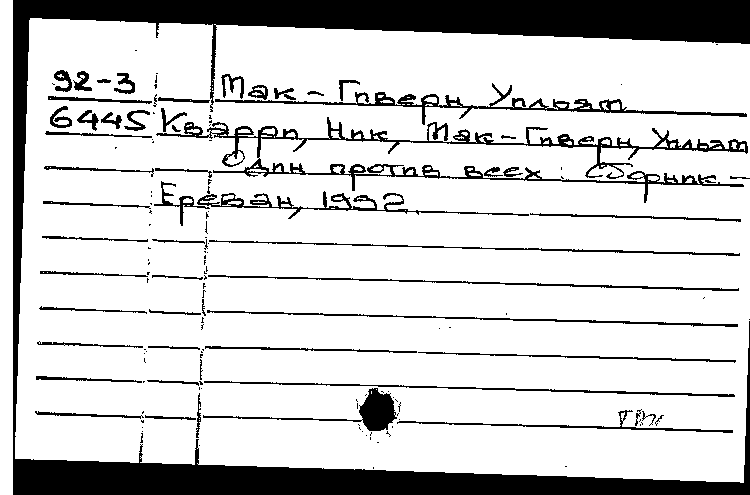 92-3 Мак-Гиверн, Уильям
6445 Кварри, Ник, Мак-Гиверн, Уильям
Один против всех : Сборник. -
Ереван, 1992.